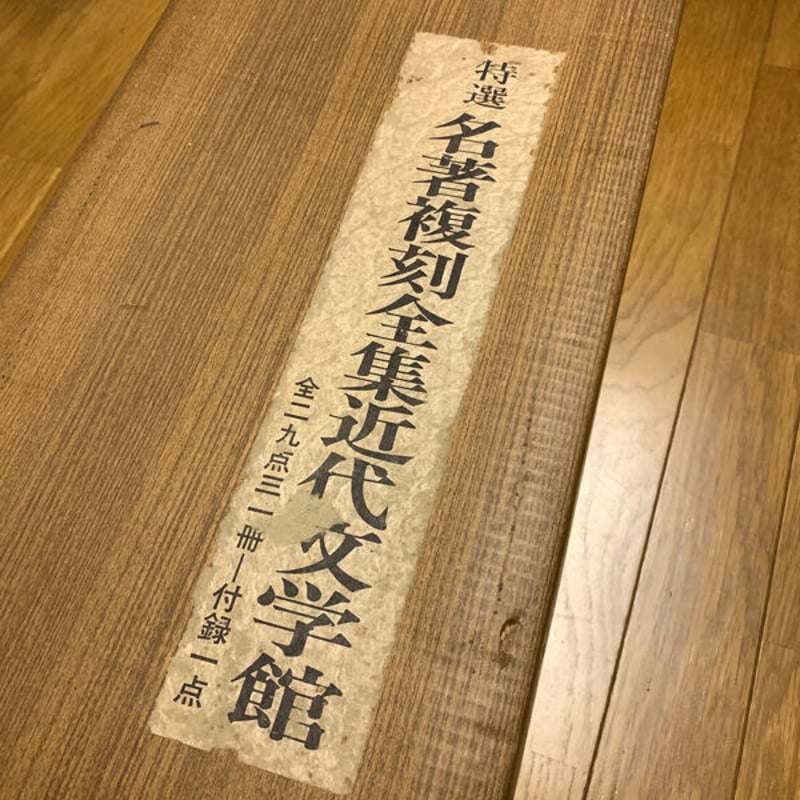 特選 名著複刻全集近代文学館
全二九点三一冊―付録一点